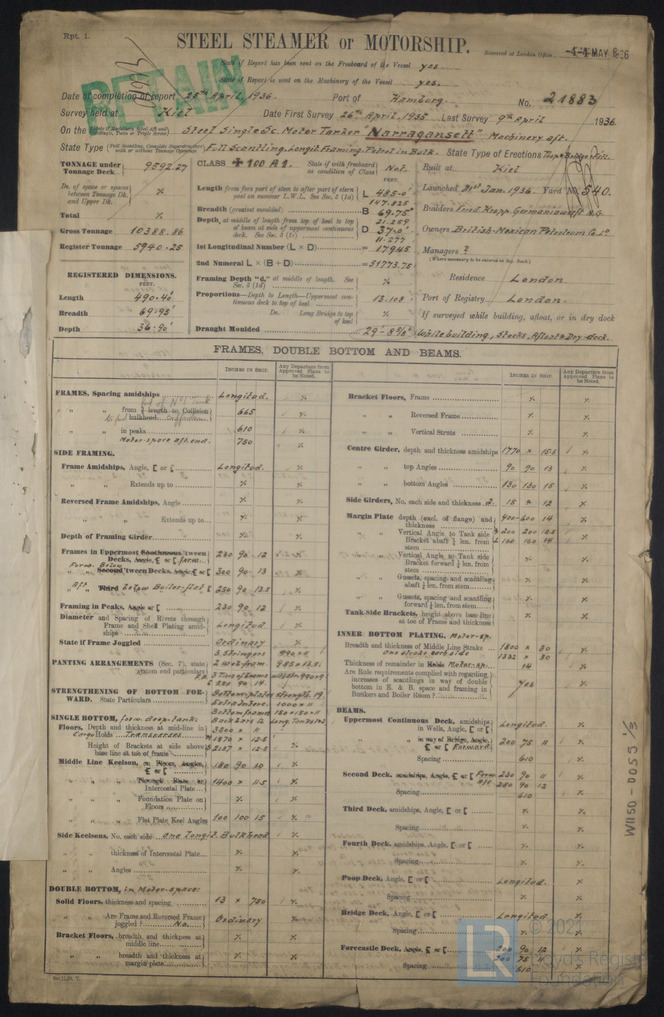 Rpt. 1.
STEEL STEAMER or MOTORSHIP.
Received at London Office 4 MAY 1936
RETAIN
If Report has been sent on the Freeboard of the Vessel yes
State if Report is sent on the Machinery of the Vessel yes.
Date of completion of report 25th April, 1936. Port of Hamburg No. 21883
Survey held at Kiel Date First Survey 26th April, 1935 Last Survey 9th April 1936.
On the Steel Single Sc. Motor Tanker "Narragansett" Machinery aft.
State Type Full Scantling, Longit. Framing, Petrol in Bulk. State Type of Erections
TONNAGE under Tonnage Deck 9592.27
Do. of space or spaces between Tonnage Dk. and Upper Dk.
Total
Gross Tonnage 10388.86
Register Tonnage 5940.25
REGISTERED DIMENSIONS.
FEET.
Length 490.40'
Breadth 69.93'
Depth 36.90'
CLASS ✠ 100 A1. State if with freeboard as condition of Class Not.
FEET.
Length from fore part of stem to after part of stern post on summer L.W.L. See Sec. 2 (1a) L 485.0'
147.825
Breadth (greatest moulded) B 69.75'
21.259
Depth, at middle of length from top of keel to top of beam at side of uppermost continuous deck. See Sec. 3 (1c) D 37.0'
11.277
1st Longitudinal Number (L × D) = 17945
2nd Numeral L × (B + D) = 51773.75
Framing Depth "d," at middle of length. See Sec. 3 (1d)
Proportions—Depth to Length—Uppermost continuous deck to top of keel 13.108
Do. Long Bridge to top of keel
Draught Moulded 29'-8 7/16"
Built at Kiel
Launched 31st Jan. 1936. Yard No. 540.
Builders Fried. Krupp Germaniawerft A.G.
Owners British-Mexican Petroleum Co. Ld
Managers ?
(Where necessary to be entered in Reg. Book)
Residence London
Port of Registry London.
If surveyed while building, afloat, or in dry dock
While building, Stocks, Afloat & Dry-dock.
FRAMES, DOUBLE BOTTOM AND BEAMS.
INCHES IN SHIP. Any Departure from Approved Plans to be Noted.
INCHES IN SHIP. Any Departure from Approved Plans to be Noted.
FRAMES, Spacing amidships Longitud.
" " from 3/5 length to Collision bulkhead 665
" " in peaks 610
Motor-space aft. end. 750
SIDE FRAMING.
Frame Amidships, Angle, [ or ⌈ Longitud.
" " Extends up to
Reversed Frame Amidships, Angle
" " Extends up to
Depth of Framing Girder
Frames in Uppermost Continuous 'tween Decks, Angle, [ or ⌈ 230 90 12
" " Second 'tween Decks, Angle, [ or ⌈ 300 90 13
" " Third Below Boiler-flat 250 90 12.5
Framing in Peaks, Angle or [ 230 90 12
Diameter and Spacing of Rivets through Frame and Shell Plating amidships Longitud.
State if Frame Joggled Ordinary
PANTING ARRANGEMENTS (Sec. 7), state system and particulars
STRENGTHENING OF BOTTOM FORWARD. State Particulars
SINGLE BOTTOM, form deep tank:
Floors, Depth and thickness at mid-line in Cargo Holds
Height of Brackets at side above base line at toe of frame
Middle Line Keelson, on Floors, Angles, [ or ⌈ 180 90 10
" " Through Plate or Intercostal Plate 1400 × 11.5
" " Foundation Plate on Floors
" " Flat Plate Keel Angles 100 100 15
Side Keelsons, No. each side one Longit. Bulkhead
" " thickness of Intercostal Plate
" " Angles
DOUBLE BOTTOM, in Motor-space:
Solid Floors, thickness and spacing 13 × 750
" " Are Frame and Reversed Frame joggled? No. Ordinary
Bracket Floors, breadth and thickness at middle line
" " breadth and thickness at margin plate
Bracket Floors, Frame
" " Reversed Frame
" " Vertical Struts
Centre Girder, depth and thickness amidships 1770 × 15.5
" " top Angles 90 90 13
" " bottom Angles 130 130 15
Side Girders, No. each side and thickness 2. 15 × 12
Margin Plate depth (excl. of flange) and thickness 400-600 14
" " Vertical Angle to Tank side Bracket abaft 1/4 len. from stem
" " Vertical Angle to Tank side Bracket forward 1/4 len. from stem
" " Gussets, spacing and scantling abaft 1/4 len. from stem
" " Gussets, spacing and scantling forward 1/4 len. from stem
Tank Side Brackets, height above base line at toe of Frame and thickness
INNER BOTTOM PLATING. Motor-sp.
Breadth and thickness of Middle Line Strake 1800 × 30
One strake each side 1332 × 30
Thickness of remainder in Holds Motor.sp. 14
Are Rule requirements complied with regarding increases of scantlings in way of double bottom in E. & B. space and framing in Bunkers and Boiler Room? yes
BEAMS.
Uppermost Continuous Deck, amidships in Wells, Angle, [ or ⌈ Longitud.
" " in way of Bridge, Angle, [ or ⌈ Forward 200 75 11
Spacing 610
Second Deck, amidships, Angle, [ or ⌈ 230 90 11
250 90 12
Spacing 610
Third Deck, amidships, Angle, [ or ⌈
Spacing
Fourth Deck, amidships, Angle, [ or ⌈
Spacing
Poop Deck, Angle, [ or ⌈ Longitud.
Spacing
Bridge Deck, Angle, [ or ⌈ Longitud.
Spacing
Forecastle Deck, Angle, [ or ⌈ 200 90 12
200 75 11
Spacing 610
W1150-0055 1/3
LR
Lloyd's Register
Foundation